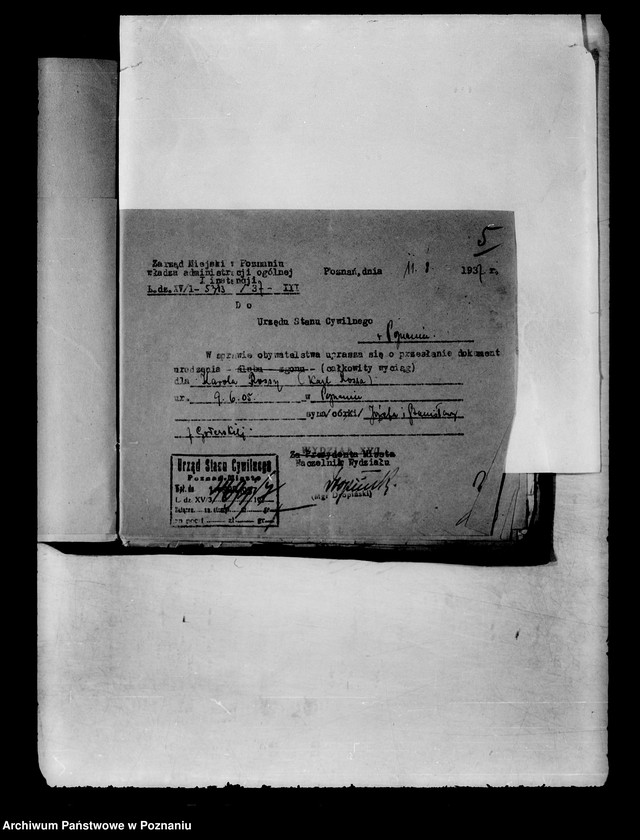 5
Zarząd Miejski w Poznaniu
władza administracji ogólnej
I instancji
L.dz.XV/1- /37- III
Poznań, dnia 11. 8. 1937 r.
D o
Urzędu Stanu Cywilnego
w Poznaniu.
W sprawie obywatelstwa uprasza się o przesłanie dokument
urodzenia - ślubu - zgonu - (całkowity wyciąg)
dla Karola Rossy (Karl Rossa)
ur. 9.6.05. w Poznaniu
syna/córki/ Józefa i Stanisławy
Za Prezydenta Miasta
Naczelnik Wydziału
Urząd Stanu Cywilnego
Poznań-Miasto
Wpł. dn.
L. dz. XV/3
Załącz. zn. stempl. zł gr
na poczt. zł gr
Archiwum Państwowe w Poznaniu